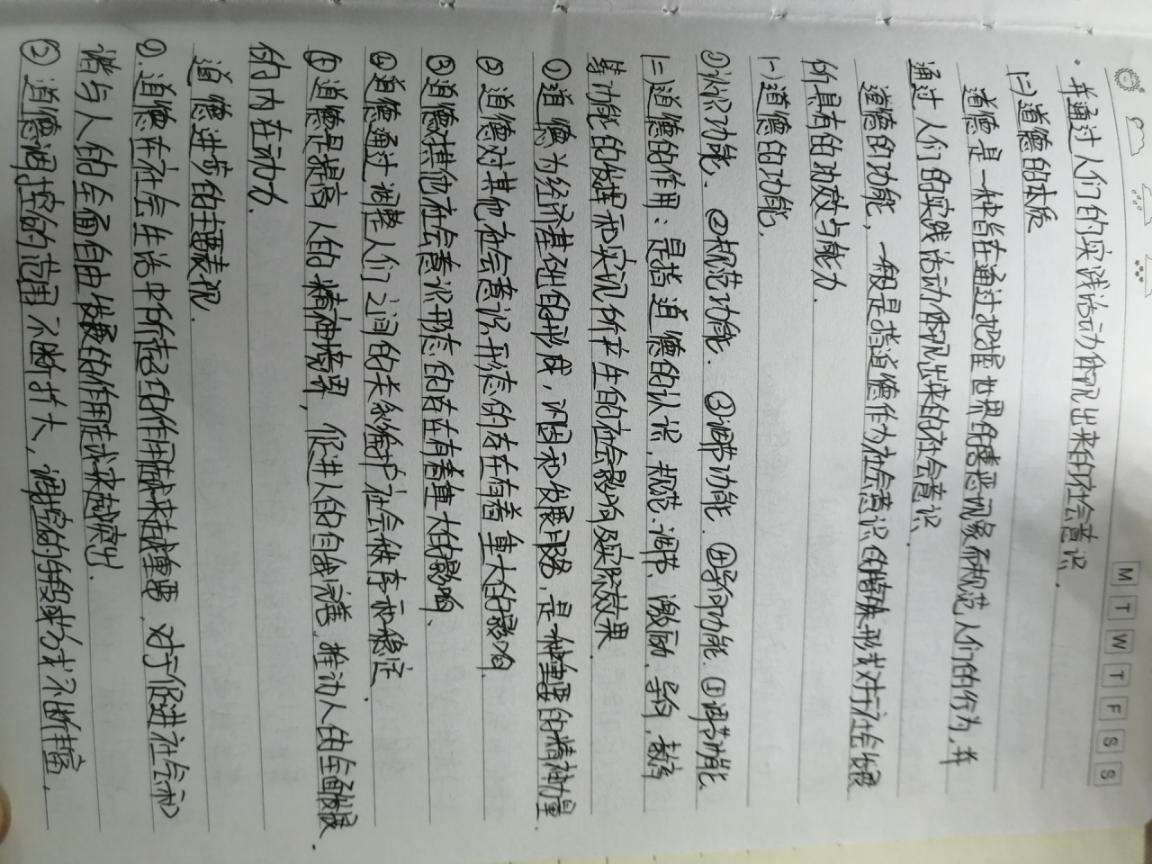 M T W T F S S
· 并通过人们的实践活动体现出来的社会意识.
(二)道德的本质
道德是一种旨在通过把握世界善恶现象而规范人们的行为,并
通过人们的实践活动体现出来的社会意识.
道德的功能,一般是指道德作为社会意识的特殊形式对于社会发展
所具有的功效与能力.
(一)道德的功能.
①认识功能. ②规范功能. ③调节功能. ④导向功能. ⑤调节功能
(二)道德的作用:是指道德的认识,规范、调节、激励,导向,教育
等功能的发挥和实现所产生的社会影响及实际效果.
①道德为经济基础的形成,巩固和发展服务,是一种重要的精神力量.
② 道德对其他社会意识形态的存在有着重大的影响.
③ 道德对其他社会意识形态的存在有着重大的影响.
④道德通过调整人们之间的关系维护社会秩序和稳定.
⑤道德是提高人的精神境界,促进人的自我完善,推动人的全面发展
的内在动力.
道德进步的主要表现.
①.道德在社会生活中所起的作用越来越重要,对于促进社会和
谐与人的全面自由发展的作用越来越突出.
② 道德调控的范围不断扩大,调控的手段或方式不断丰富,